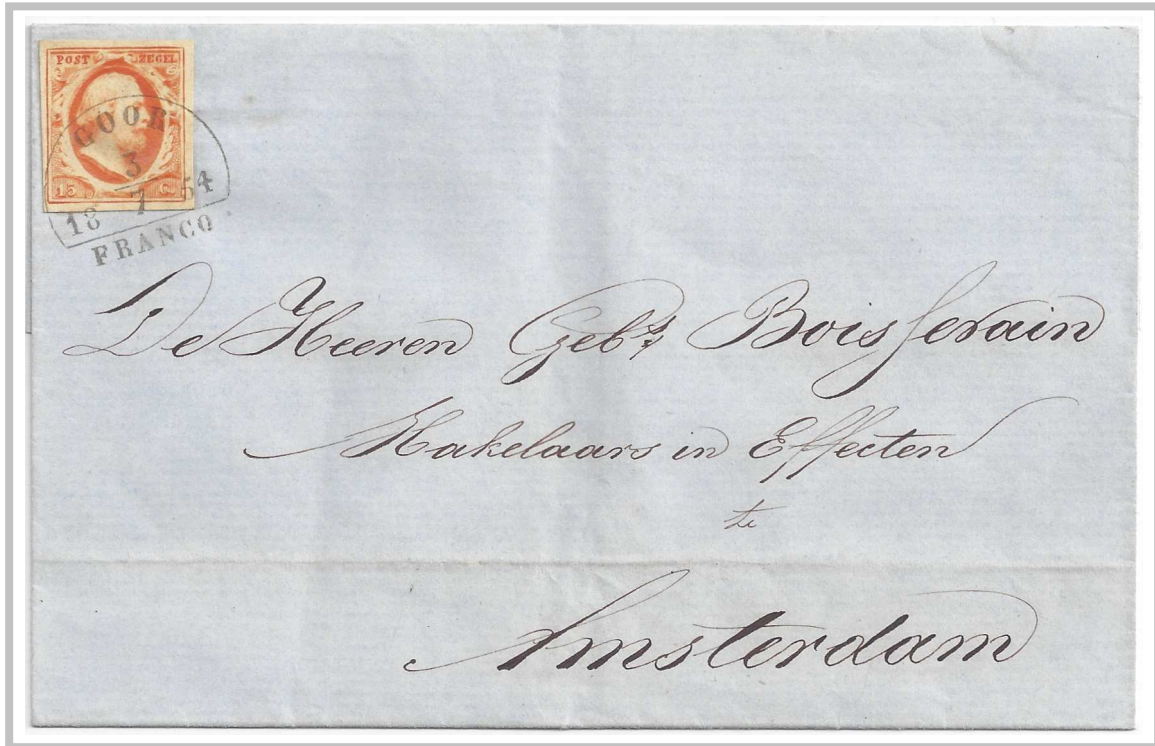 POST ZEGEL
15 C
GOOR
3
7
18 54
FRANCO
De Heeren Gebrs Boissevain
Makelaars in Effecten
te
Amsterdam